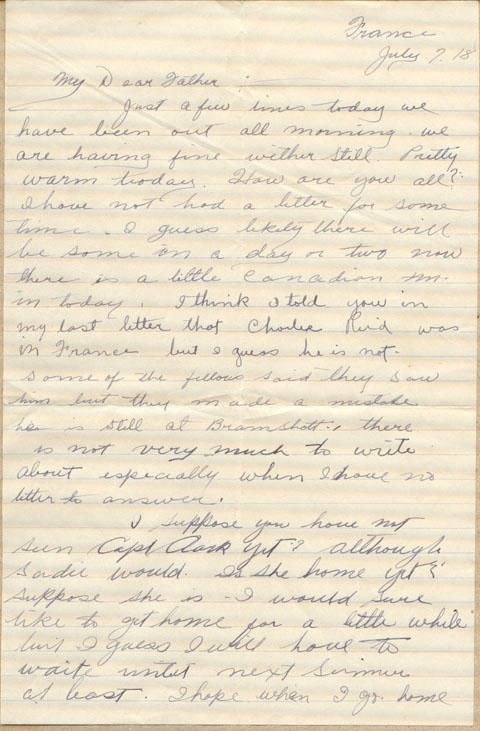 France
July 7. 18
My Dear Father :
Just a few lines today we
have been out all morning. we
are having fine wether still. Pretty
warm today. How are you all?
I have not had a letter for some
time. I guess likely there will
be some in a day or two now
there is a little Canadian m.
in today. I think I told you in
my last letter that Charlie Reid was
in France but I guess he is not.
Some of the fellows said they saw
him but they made a mistake
he is still at Bramshott. there
is not very much to write
about especially when I have no
letter to answer.
I suppose you have not
seen Capt yet? although
Sadie would. Is she home yet?
suppose she is - I would sure
like to get home for a little while
but I guess I will have to
waite until next Summer
at least. I hope when I go home